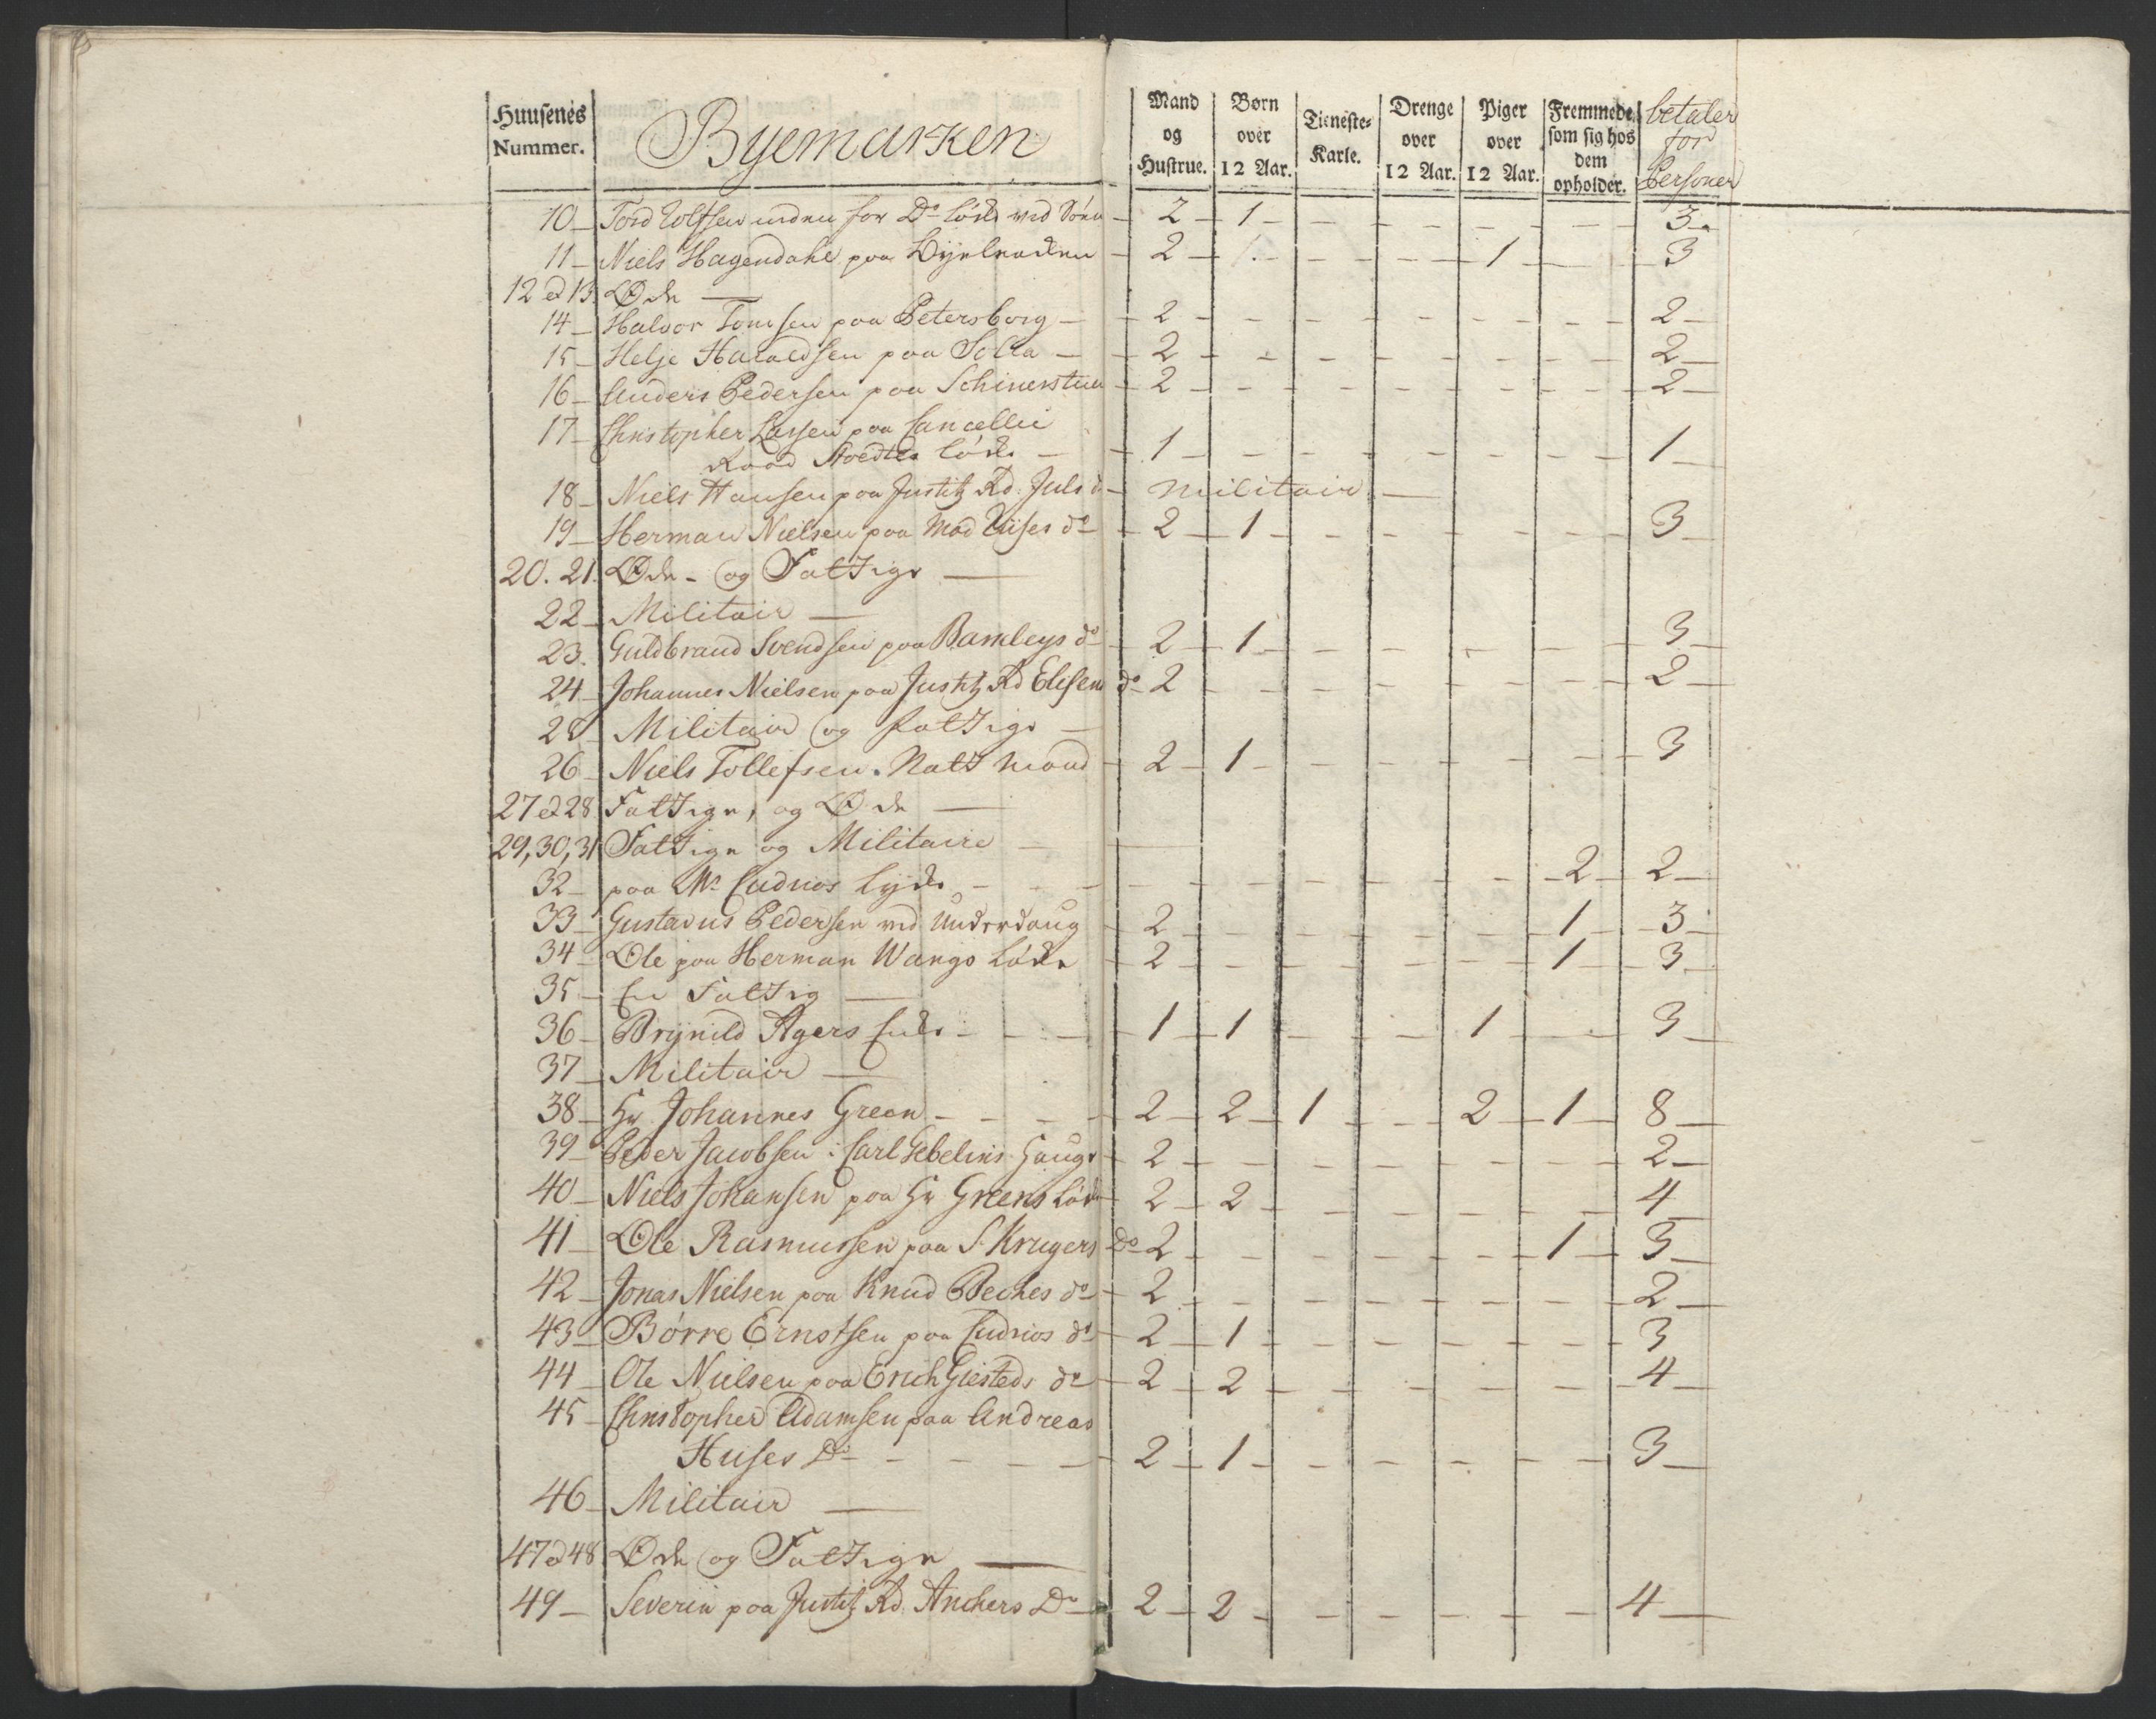 Huusenes Nummer. Byemarken Mand og Hustrue. Børn over 12 Aar. Tieneste-Karle. Drenge over 12 Aar. Piger over 12 Aar. Fremmede, som sig hos dem opholder. betaler for Personer
10 – Tord Wolfsen neden for Do Løkke ved – 2 – 1 – – – – – 3
11 – Niels Hagendahl paa – 2 – 1 – – – 1 – 3
12 et 13. Øde —
14 – Halvor Tomsen paa Petersborg – 2 – – – – – 2
15 – Helje Haraldsen paa Solla – 2 – – – – – 2
16 – Anders Pedersen paa Schinerstuen – 2 – – – – – 2
17 – Christopher Larsen paa Cancellie
Raad Stoedtes Løkke – 1 – – – – – 1
18 – Niels Hansen paa Justitz Rd. Juls do – Militair —
19 – Herman Nielsen paa Mad do – 2 – 1 – – – – 3
20. 21. Øde – og Fattige —
22 – Militair —
23. Guldbrand Svendsen paa Bamleys do – 2 – 1 – – – – 3
24 – Johannes Nielsen paa Justitz Rd Eliesens do 2 – – – – – 2
25 – Militair og fattige —
26 – Niels Tollefsen. Natt Mand – 2 – 1 – – – – 3
27 et 28 Fattige, og Øde —
29, 30, 31 Fattige og Militaire —
32 – paa Mr Cudrios Lycke – – – – – – 2 – 2
33 – Gustavus Pedersen ved Underhaug – 2 – – – – 1 – 3
34 – Ole paa Herman Wangs Løkke – 2 – – – – 1 – 3
35 – En Fattig —
36 – Brynild Agers Enke – – – 1 – 1 – – 1 – – 3
37 – Militair —
38 – Hr Johannes Green – – – 2 – 2 – 1 – – 2 – 1 – 8
39 – Peder Jacobsen i Carl Gebelins Hauge – 2 – – – – – 2
40 – Niels Johansen paa Hr Greens Løkke – 2 – 2 – – – – 4
41 – Ole Rasmussen paa S. Krugers Do 2 – – – – 1 – 3
42 – Jonas Nielsen paa Knud Beches do – 2 – – – – – 2
43 – Børre Ernstsen paa Cudrios do – 2 – 1 – – – – 3
44 – Ole Nielsen paa Erich Giesteds do – 2 – 2 – – – – 4
45 – Christopher Adamsen paa Andreas
Huses Do – – – 2 – 1 – – – – 3
46 – Militair —
47 et 48 Øde og Fattige —
49 – Severin paa Justitz Rd. Anchers Do – 2 – 2 – – – – 4